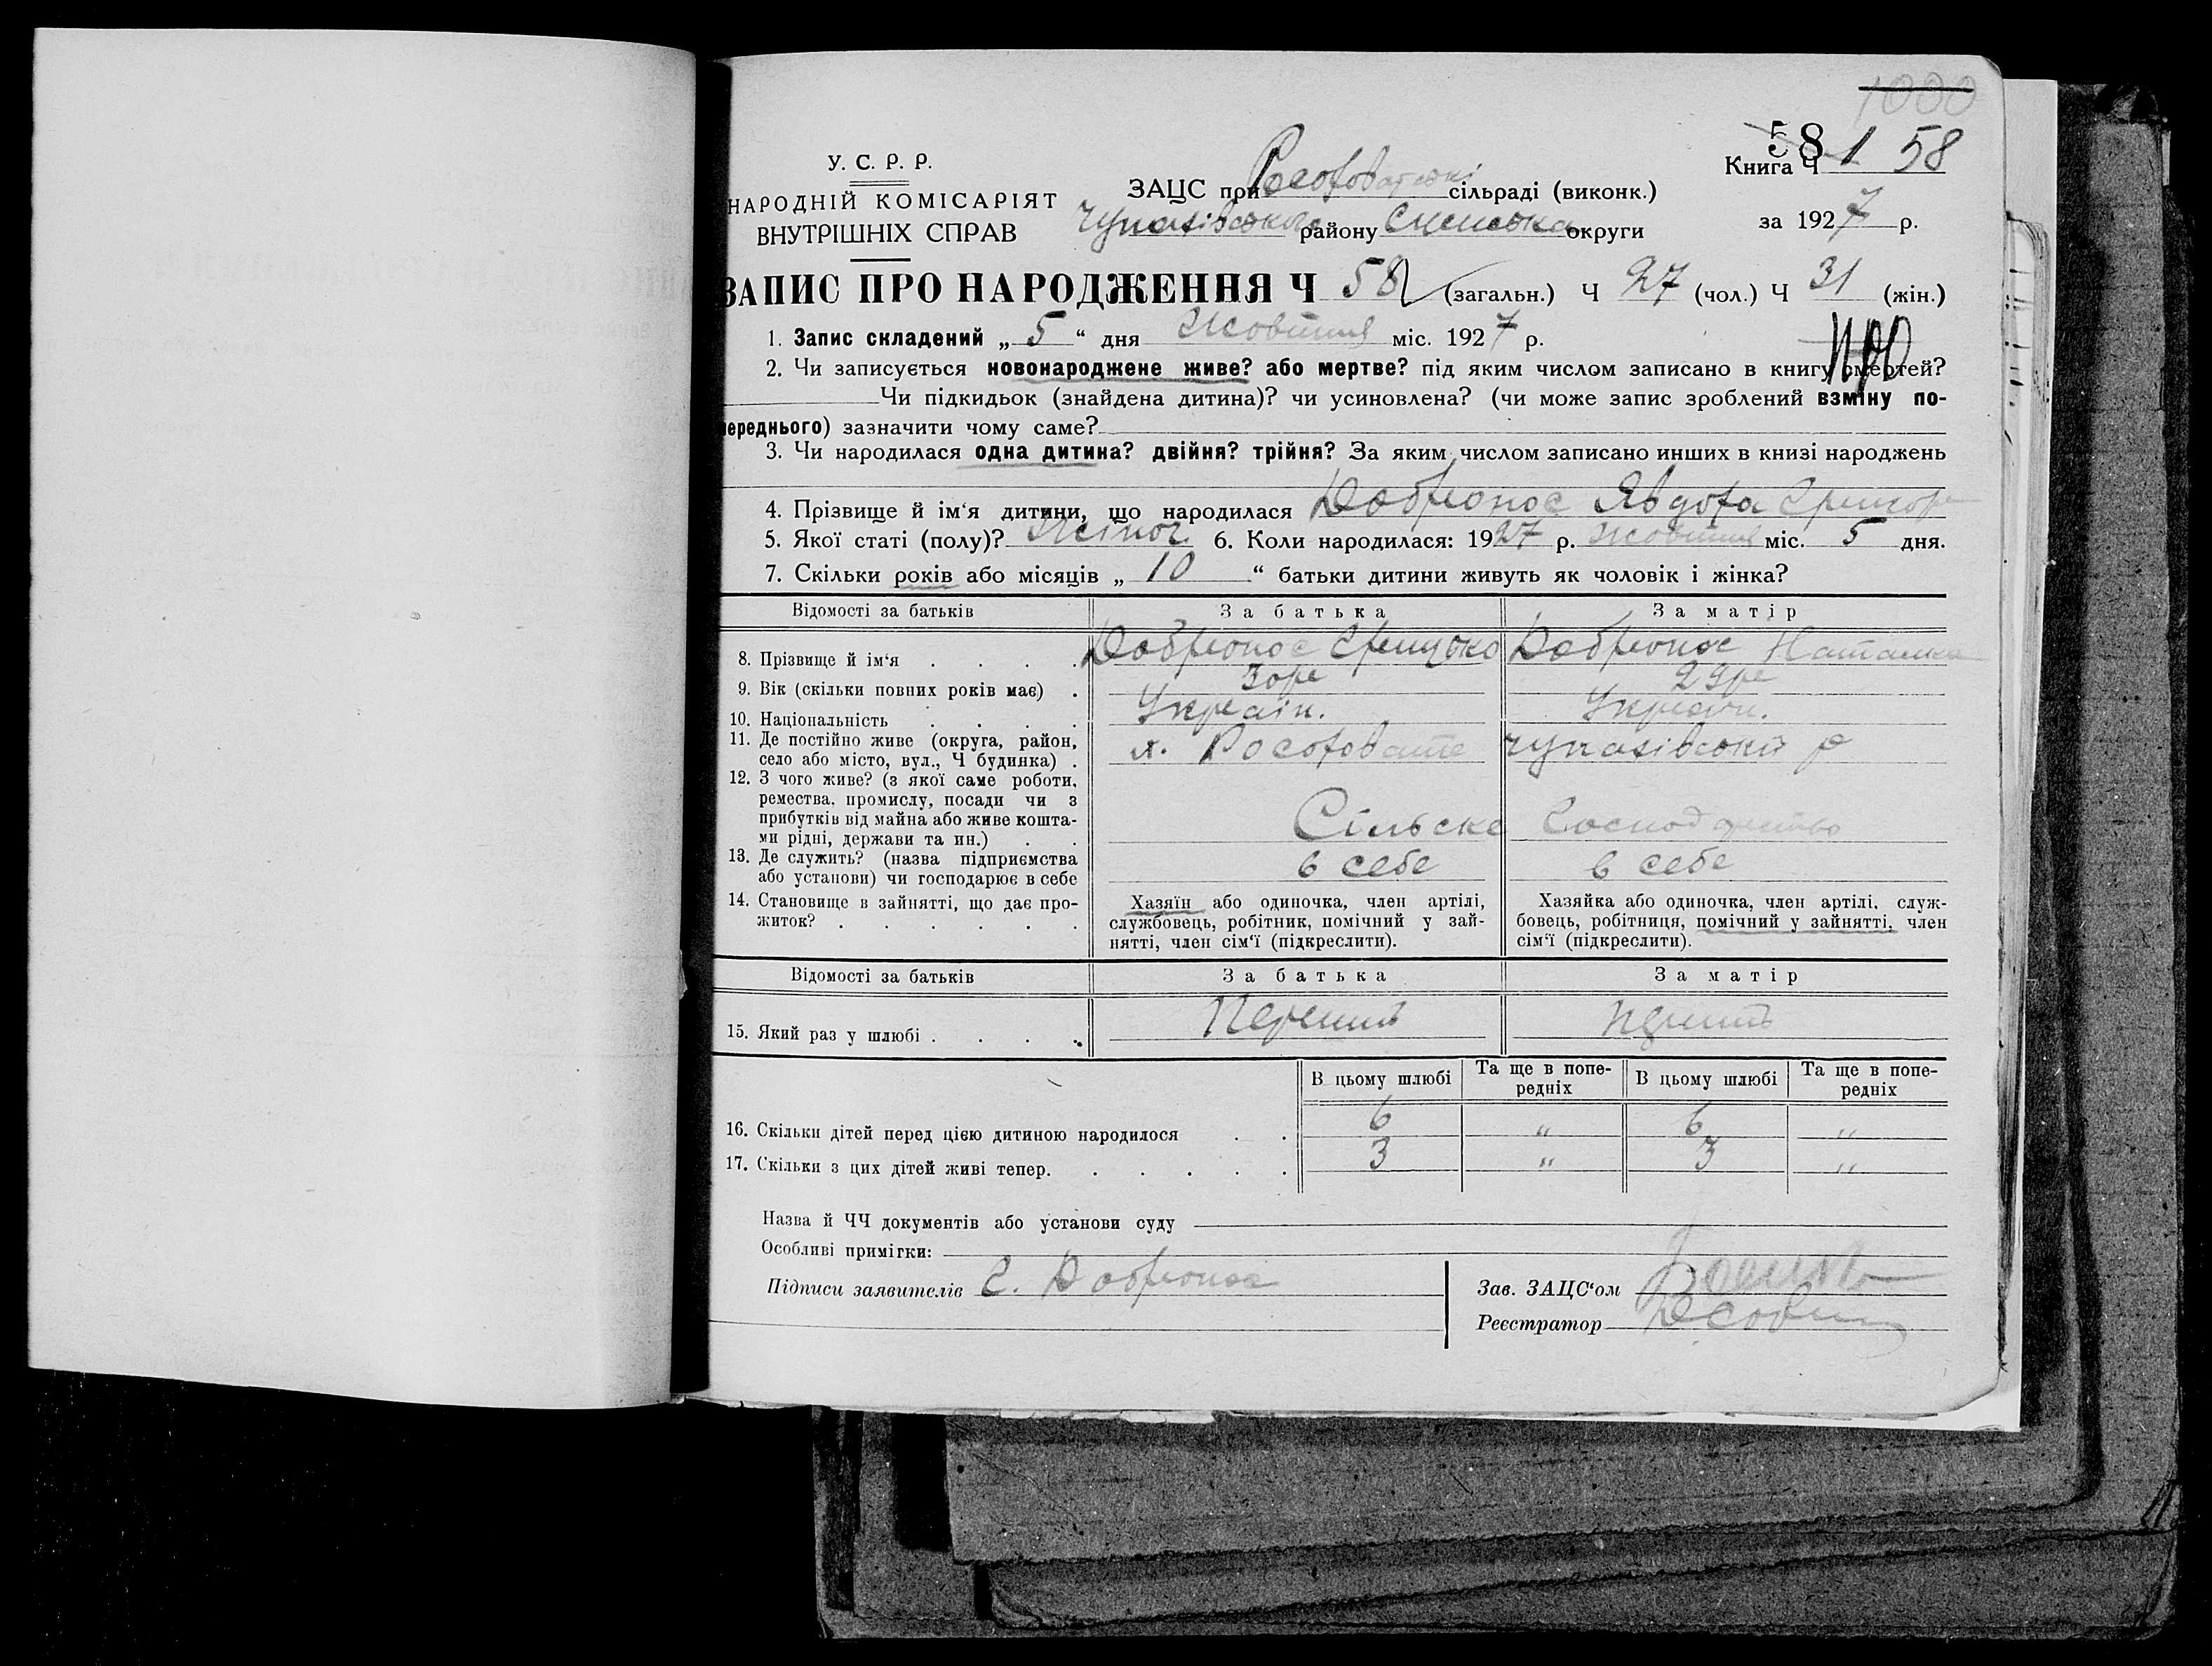 1000
58 1 58
У. С. Р. Р.
НАРОДНІЙ КОМІСАРІЯТ
ВНУТРІШНІХ СПРАВ
ЗАЦС при Росоховатскі сільраді (виконк.)
Чупахівського району Сумська округи
Книга Ч
за 1927 р.
ЗАПИС ПРО НАРОДЖЕННЯ Ч 58 (загальн.) Ч 27 (чол.) Ч 31 (жін.)
1. Запис складений „ 5 “ дня Жовтня міс. 1927 р.
2. Чи записується новонароджене живе? або мертве? під яким числом записано в книгу смертей?
Чи підкидьок (знайдена дитина)? чи усиновлена? (чи може запис зроблений взміну по-
переднього) зазначити чому саме?
3. Чи народилася одна дитина? двійня? трійня? За яким числом записано инших в книзі народжень
4. Прізвище й ім‘я дитини, що народилася Добронос Явдоха Григор
5. Якої статі (полу)? Жіноч. 6. Коли народилася: 1927 р. Жовтня міс. 5 дня.
7. Скільки років або місяців „ 10 “ батьки дитини живуть як чоловік і жінка?
Відомості за батьків За батька За матір
8. Прізвище й ім‘я . . . . Добронос Грицько Добронос Наталка
9. Вік (скільки повних років має) . 30ре 29ре
10. Національність . . . . Украін. Украін.
11. Де постійно живе (округа, район,
село або місто, вул., Ч будинка) . х. Росоховате Чупахівський р
12. З чого живе? (з якої саме роботи,
ремества, промислу, посади чи з
прибутків від майна або живе кошта-
ми рідні, держави та ин.) . . Сільске Господарство
13. Де служить? (назва підприємства
або установи) чи господарює в себе в себе в себе
14. Становище в зайнятті, що дає про-
житок? . . . . . .
Хазяїн або одиночка, член артілі,
службовець, робітник, помічний у зай-
нятті, член сім‘ї (підкреслити).
Хазяйка або одиночка, член артілі, служ-
бовець, робітниця, помічний у зайнятті, член
сім‘ї (підкреслити).
Відомості за батьків За батька За матір
15. Який раз у шлюбі . . . . Перший Перший
В цьому шлюбі Та ще в попе-
редніх В цьому шлюбі Та ще в попе-
редніх
16. Скільки дітей перед цією дитиною народилося . . 6 „ 6 „
17. Скільки з цих дітей живі тепер. . . . . . 3 „ 3 „
Назва й ЧЧ документів або установи суду
Особливі примітки:
Підписи заявителів Г. Добронос
Зав. ЗАЦС‘ом
Реєстратор